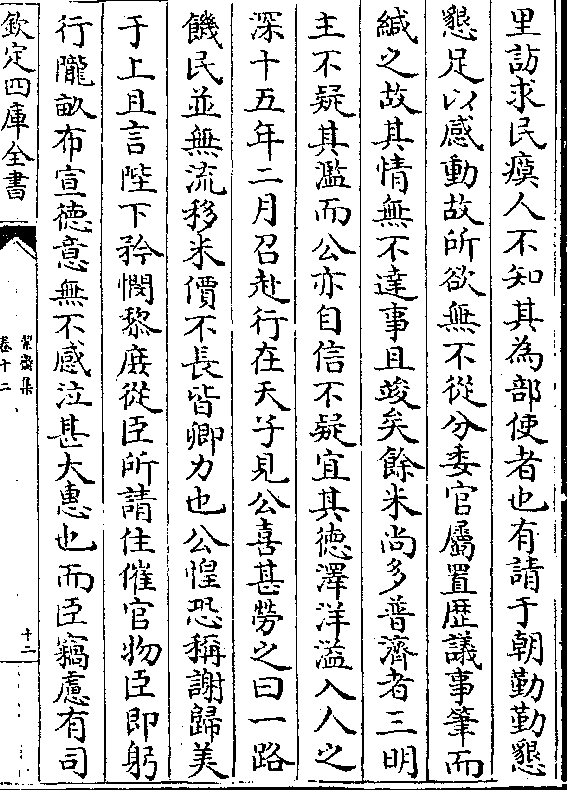 里訪求民瘼人不知其為部使者也有請于朝勤勤懇
懇足以感動故所欲無不從分委官屬置歴議事筆而
緘之故其情無不達事且竣矣餘米尚多普濟者三明
主不疑其濫而公亦自信不疑宜其徳澤洋溢入人之
深十五年二月召赴行在天子見公喜甚勞之曰一路
饑民並無流移米價不長皆卿力也公惶恐稱謝歸美
于上且言陛下矜憫黎庻從臣所請住催官物臣即躬
行隴畝布宣徳意無不感泣甚大惠也而臣竊慮有司
欽定四庫全書
絜齋集
卷十二
十二